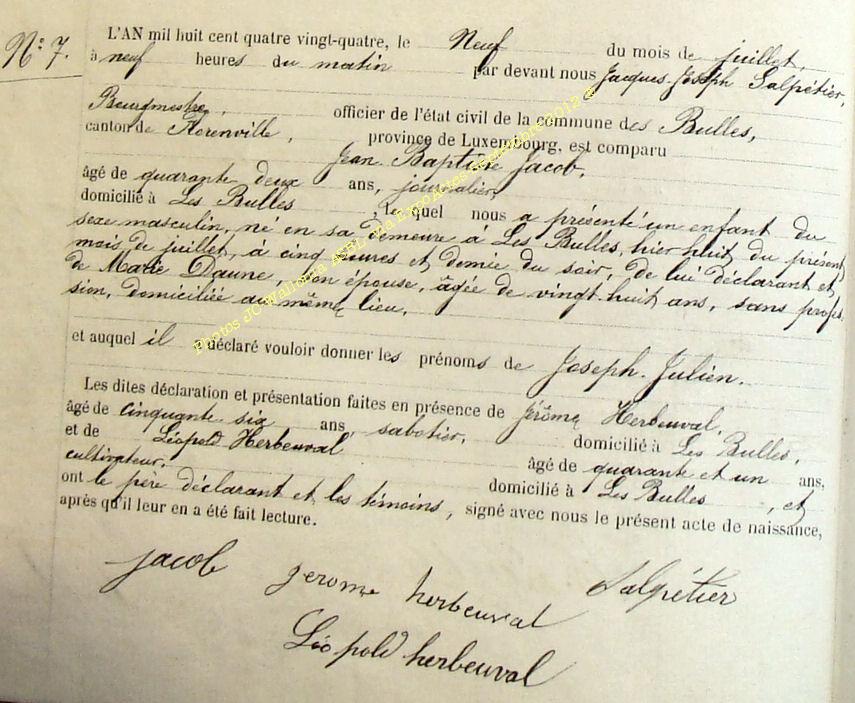 N° 7.
L'AN mil huit cent quatre vingt-quatre, le Neuf du mois de juillet,
à neuf heures du matin par devant nous Jacques-Joseph Salpétier,
Bourgmestre, officier de l'état civil de la commune des Bulles,
canton de Florenville, province de Luxembourg, est comparu
Jean Baptiste Jacob,
âgé de quarante deux ans, journalier,
domicilié à Les Bulles, lequel nous a présenté un enfant du
sexe masculin, né en sa demeure à Les Bulles, hier huit du présent
mois de juillet, à cinq heures et demie du soir, de lui déclarant et
de Marie Daune, son épouse, âgée de vingt-huit ans, sans profes
sion, domiciliée au même lieu,
et auquel il déclaré vouloir donner les prénoms de Joseph-Julien.
Les dites déclaration et présentation faites en présence de Jérôme Herbeuval,
âgé de cinquante six ans, sabotier, domicilié à Les Bulles,
et de Léopold Herbeuval âgé de quarante et un ans,
cultivateur, domicilié à Les Bulles, et
ont le père déclarant et les témoins, signé avec nous le présent acte de naissance,
après qu'il leur en a été fait lecture.
jacob jerome herbeuval Salpétier
Léopold herbeuval
Photos JC Wallonia ASBL via ExpoActes Septembre 2012 ©